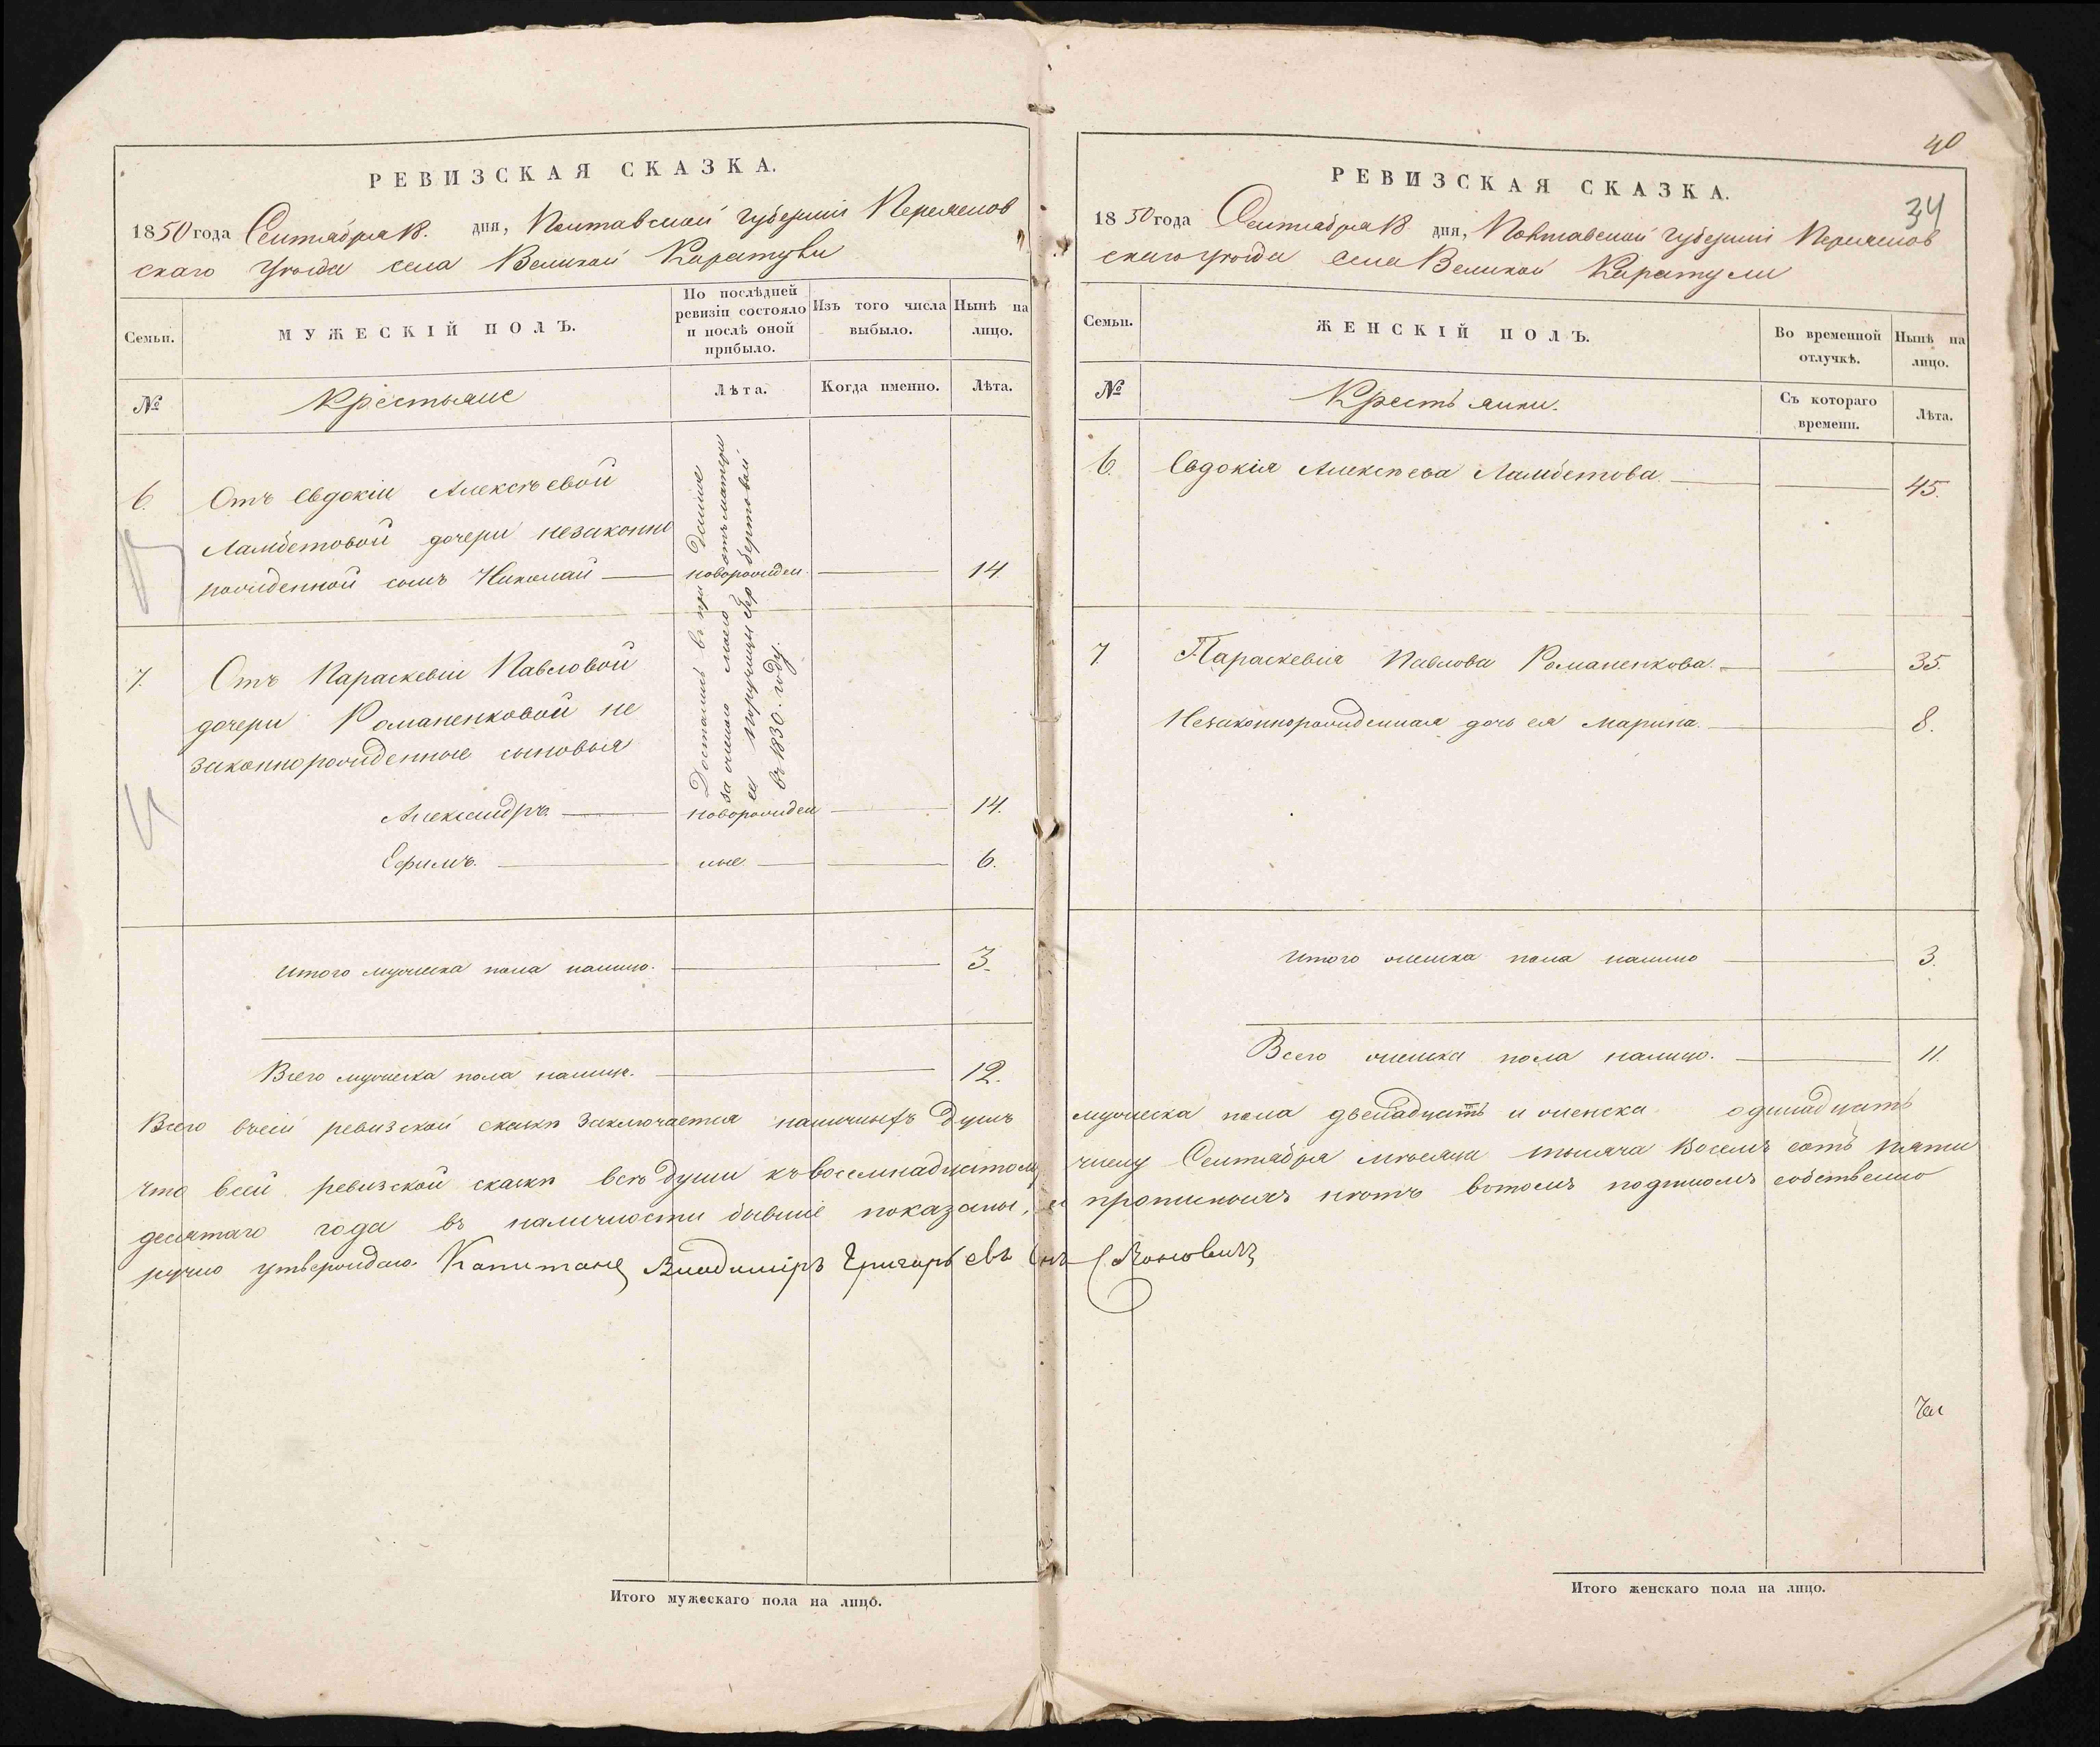 РЕВИЗСКАЯ СКАЗКА.
1850 года Сентября 18. дня, Полтавской губернии Переяслов
скаго уѣзда села Великой Каратули
Семьи.
МУЖЕСКІЙ ПОЛЪ.
По послѣдней ревизіи состояло и послѣ оной прибыло.
Изъ того числа выбыло.
Нынѣ на лицо.
№
Крестьяне
Лѣта.
Когда именно.
Лѣта.
6. Отъ Евдокіи Алексѣевой
Ламбетовой дочери незаконно
рожденной сынъ Николай новорожден. 14.
7. Отъ Параскевіи Павловой
дочери Романенковой не
законнорожденные сыновья
Александръ. новорожден 14.
Ефимъ. ные. 6.
Достались въ при даные
за женою моею отъ матери
ея порутчицы бертовой
въ 1830. году.
Итого мужеска пола налицо. 3.
Всего мужеска пола налицо. 12.
40
34
РЕВИЗСКАЯ СКАЗКА.
1850 года Сентября 18 дня, Полтавской губернии Переяслов
скаго уѣзда села Великой Каратули
Семьи.
ЖЕНСКІЙ ПОЛЪ.
Во временной отлучкѣ.
Нынѣ на лицо.
№
Крестьянки.
Съ котораго времени.
Лѣта.
6. Евдокія Алексѣева Ламбетова 45.
7. Параскевія Павлова Романенкова. 35.
Незаконнорожденная дочь ея Марина. 8.
Итого женска пола налицо 3.
Всего женска пола налицо. 11.
Всего въ сей ревизской сказки заключается наличныхъ душъ мужеска пола двенадцать и женска одинадцать
что всей ревизской сказки всѣ души къ восемнадцатому числу Сентября мѣсяца тысяча восемь сотъ пяти
десятаго года въ наличности бывшіе показаны, и прописныхъ нѣтъ вътомъ подписомъ собственно
ручно утверждаю. Капитанъ Владимиръ Григорьевъ сынъ
Итого мужескаго пола на лицо.
Итого женскаго пола на лицо.